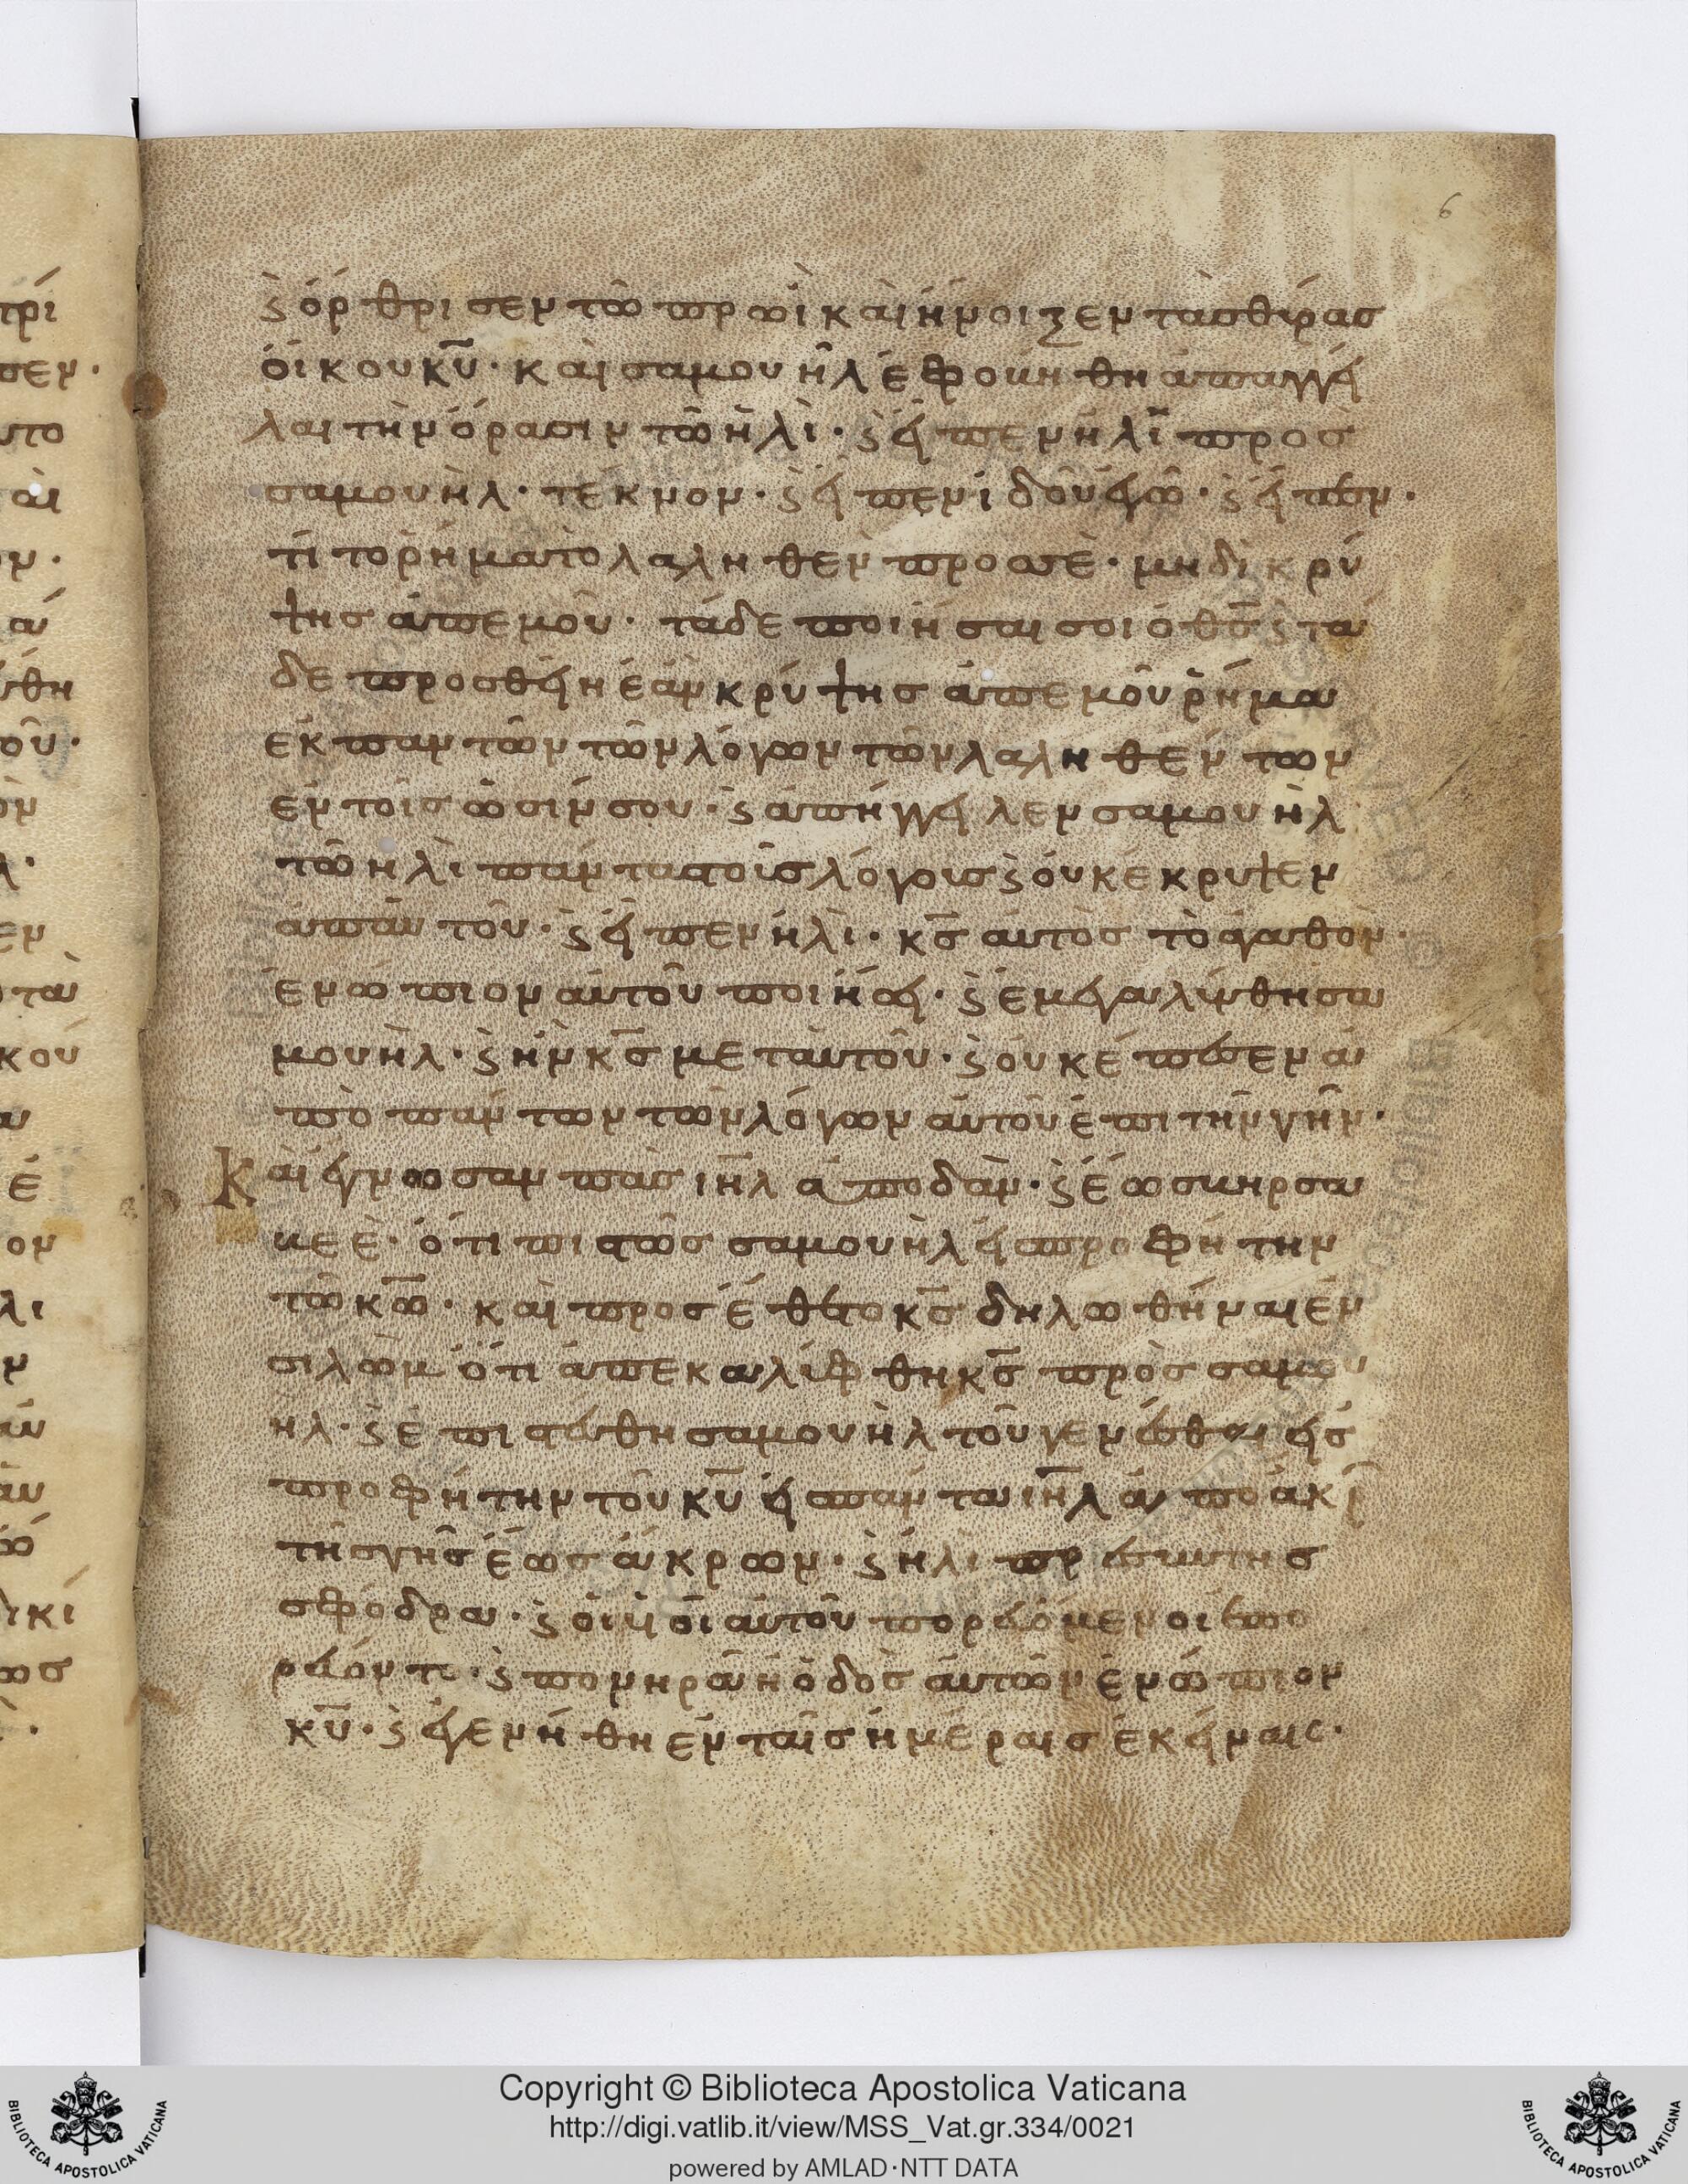 6
ϛ ὄρθρισεν τῶ πρωῒ καὶ ἤνοιξεν τὰς θύρας
οἴκου κ̅υ̅· καὶ σαμουὴλ ἐφοβήθη ἀπαγγεῖ
λαι τὴν ὅρασιν τῶ ἡλὶ· ϛ εἶπεν ἡλὶ προς
σαμουὴλ· τέκνον· ϛ εἶπεν ἰδοὺ ἐγῶ· ϛ εἶπεν·
τί τὸ ῥῆμα τὸ λαληθὲν πρὸς σὲ· μὴ δὶ κρύ
ψης ἀπεμοῦ· τάδε ποιήσαι σοι ὁ θ̅ς̅ ϛ τά
δε προσθείη ἐὰν κρύψης ἀπεμοῦ ῥῆμα
ἐκ παντῶν τῶν λόγων τῶν λαληθέντων
ἐν τοῖς ὠσίν σου· ϛ ἀπήγγειλεν σαμουὴλ
τῶ ἡλὶ πάντας τοὺς λόγους ϛ οὐκ ἔκρυψεν
ἀπαυτοῦ· ϛ εἶπεν ἡλὶ· κ̅ς̅ αὐτὸς τὸ ἀγαθὸν·
ἐνώπιον αὐτοῦ ποιήσει· ϛ ἐμεγαλύνθη σα
μουὴλ· ϛ ἦν κ̅ς̅ μεταυτοῦ· ϛ οὐκ ἔπεσεν ἀ
πὸ πάντων τῶν λόγων αὐτοῦ ἐπι τὴν γῆν·
Καὶ ἔγνωσαν πᾶς ι̅η̅λ̅ ἀπο δὰν· ϛ ἕως βηρσα
βεὲ· ὅτι πιστὸς σαμουὴλ εἰς προφήτην
τῶ κ̅ω̅· καὶ προσέθετο κ̅ς̅ δηλωθῆναι ἐν
σιλὼμ ὅτι ἀπεκαλύφθη κ̅ς̅ πρὸς σαμου
ὴλ· ϛ ἐπιστεύθη σαμουὴλ τοῦ γενέσθαι εἰς
προφήτην τοῦ κ̅υ̅ εἰς πάντα ι̅η̅λ̅ ἀπο ἄκρ
τῆς γῆς ἕως ἄκρων· ϛ ἡλὶ πρεσβύτης
σφόδρα· ϛ οἱ υἱοὶ αὐτοῦ πορευόμενοι ἐπο
ρεύοντο· ϛ πονηρὰ ἡ ὁδὸς αὐτῶν ἐνώπιον
κ̅υ̅· ϛ ἐγενήθη ἐν ταῖς ἡμέραις ἐκείναις·
Copyright © Biblioteca Apostolica Vaticana
http://digi.vatlib.it/view/MSS_Vat.gr.334/0021
powered by AMLAD·NTT DATA
BIBLIOTECA APOSTOLICA VATICANA
BIBLIOTECA APOSTOLICA VATICANA